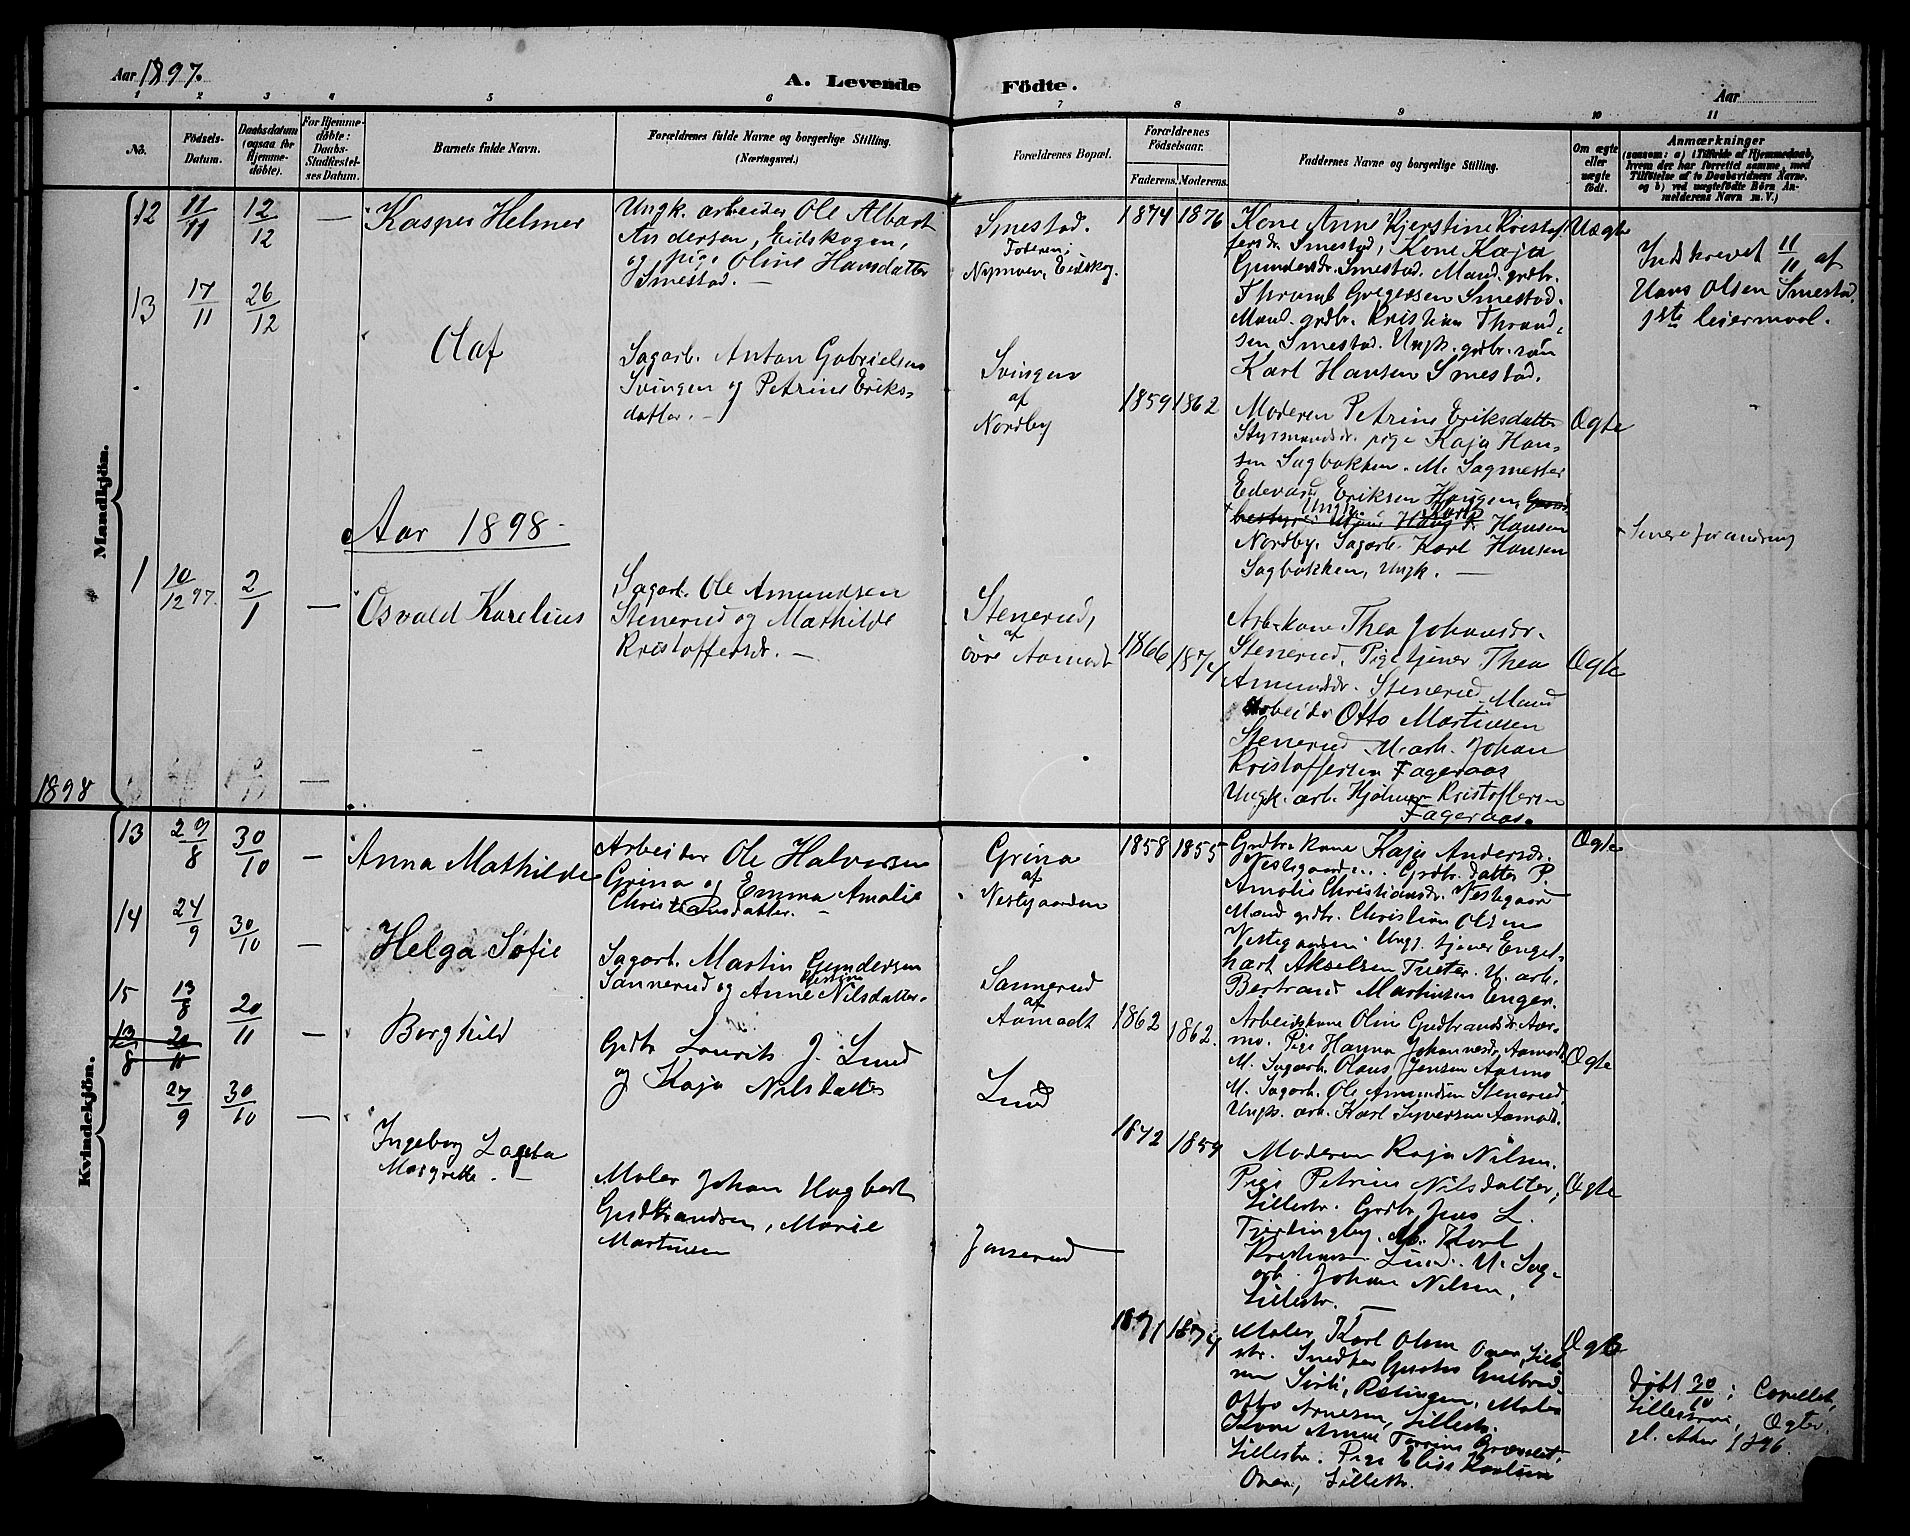 Aar 1897.
A. Levende Födte.
Aar
1 2 3 4 5 6 7 8 9 10 11
No.
Födsels-
Datum.
Daabsdatum
(ogsaa for
Hjemme-
döbte).
For Hjemme-
döbte:
Daabs-
Stadfæstel-
ses Datum.
Barnets fulde Navn.
Forældrenes fulde Navne og borgerlige Stilling.
(Næringsvei.)
Forældrenes Bopæl.
Forældrenes
Födselsaar.
Faderens. Moderens.
Faddernes Navne og borgerlige Stilling.
Om ægte
eller
uægte
födt.
Anmærkninger
(saasom: a) i Tilfælde af Hjemmedaab,
hvem der har forrettet samme, med
Tilföielse af to Daabsvidners Navne.
og b) ved uægtefödte Börn An-
melderens Navn m. V.)
Mandkjön.
12 11/11 12/12 — Kasper Helmer
Ungk. arbeider Ole Albert
Andersen, Eidskogen,
og pige Oline Hansdatter
Smestad. —
Smestad.
Faderen:
Nymoen, Eidskog.
1874 1876
Kone Anne Kjerstine Kristof
fersdr. Smestad, Kone Kaja
Gundersdr. Smestad. Mand. grdbr.
Thrond Gregersen Smestad.
Mand. grdbr. Kristian Thrond-
sen Smestad. Ungk. grdbr. sön
Karl Hansen Smestad.
Uægte
Indskrevet 11/11 af
Hans Olsen Smestad,
1ste leiermaal.
13 17/11 26/12
Olaf
Sagarb. Anton Gabrielsen
Svingen og Petrine Eriks-
datter. —
Svingen
af
Nordby
1859 1862
Moderen Petrine Eriksdatter
Styrmandsdr. pige Kaja Han-
sen Sagbakken. M. Sagmester
Edevard Eriksen Haugen,
Ungk. Karl
Hansen
Nordby, Sagarb. Karl Hansen
Sagbakken, Ungk. —
Ægte
Senere forandring
Aar 1898.
1 10/12 97. 2/1 — Osvald Karelius
Sagarb. Ole Amundsen
Stenerud og Mathilde
Kristoffersdr. —
Stenerud,
af
övre Aamodt
1866 1874
Arb. kone Thea Johansdr.
Stenerud, Pige tjener Thea
Amundsdr. Stenerud Mand
Arbeider Otto Martinsen
Stenerud M. arb. Johan
Kristoffersen Fageraas
Ungk. arb. Hjalmar Kristoffersen
Fageraas.
Ægte
1898
Kvindekjön.
13 29/8 30/10 — Anna Mathilde
Arbeider Ole Halvorsen
Grina og Emma Amalie
Christiansdatter. —
Grina
af
Vestgaarden
1858 1855
Grdbr. kone Kaja Andersdr.
Vestgaarden. Grdbr. datter P.
Amalie Christiansdr. Vestgaard
Mand grdbr. Christian Olsen
Vestgaarden. Ungk. tjener Engel-
hart Akselsen Tueter. U. arb.
Bertrand Martinsen Enger.
Ægte
14 24/9 30/10 — Helga Sofie
Sagarb. Martin Gundersen
Sannerud og Anne Nilsdatter.
Sannerud
af
Aamodt
1862 1862.
Arbeidskone Oline Gudbrandsdr. Aar-
mo. Pige Hanna Johannesdr. Aamodt
M. Sagarb. Olaus Jensen Aarmo
M. Sagarb. Ole Amundsen Stenerud
Ungk. arb. Karl Syversen Aamodt.
Ægte
15 13/8 20/11 — Borghild
Grdbr. Laurits J. Lund
og Kaja Nilsdatter
Lund
1842 1859
Moderen Kaja Nilsen.
Pige Petrine Nilsdatter,
Lillestr. Grdbr. Jens L.
Tjerdingby. M. Karl
Kristiansen Lund. U. Sag-
arb. Johan Nilsen,
Lillestr. —
Ægte
13/8 20/11
27/9 30/10 — Ingeborg
Margrethe. —
Maler Johan Hagbart
Gudbrandsen, Marie
Martinsen
Jenserud
1871 1874
Maler Karl Olsen Oven, Lille
str. Snedker Gustav
Otto Arnesen, Lillestr.
Kone Anna
Lillestr. Pige Elise Karlsen
Oven, Lillestr.
Ægte
Döbt 30/10 i Capellet,
Lilleströmmen, Ægtev.
gl. Aker 1896.